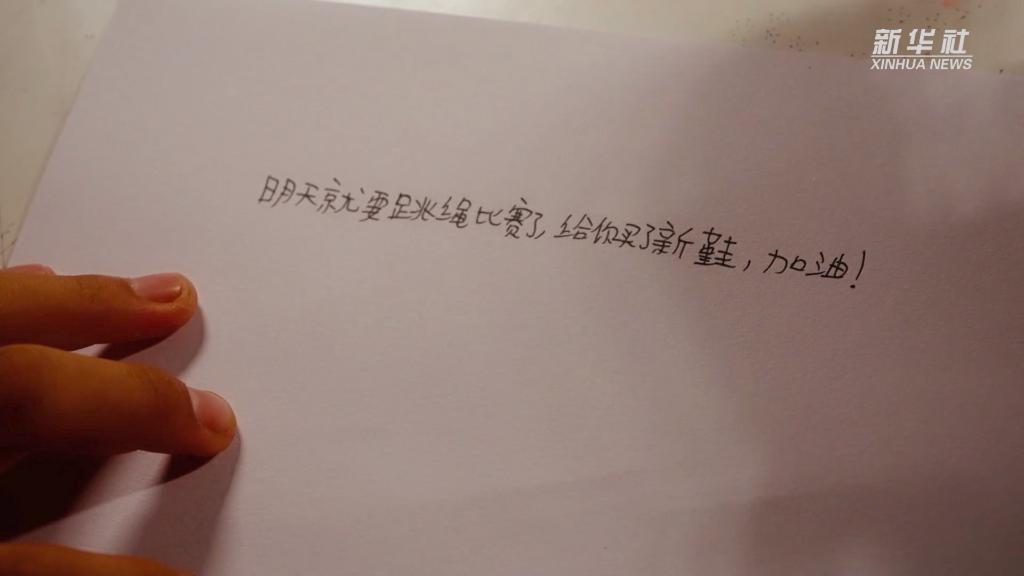 新华社
XINHUA NEWS
明天就要跳绳比赛了,给你买了新鞋,加油!